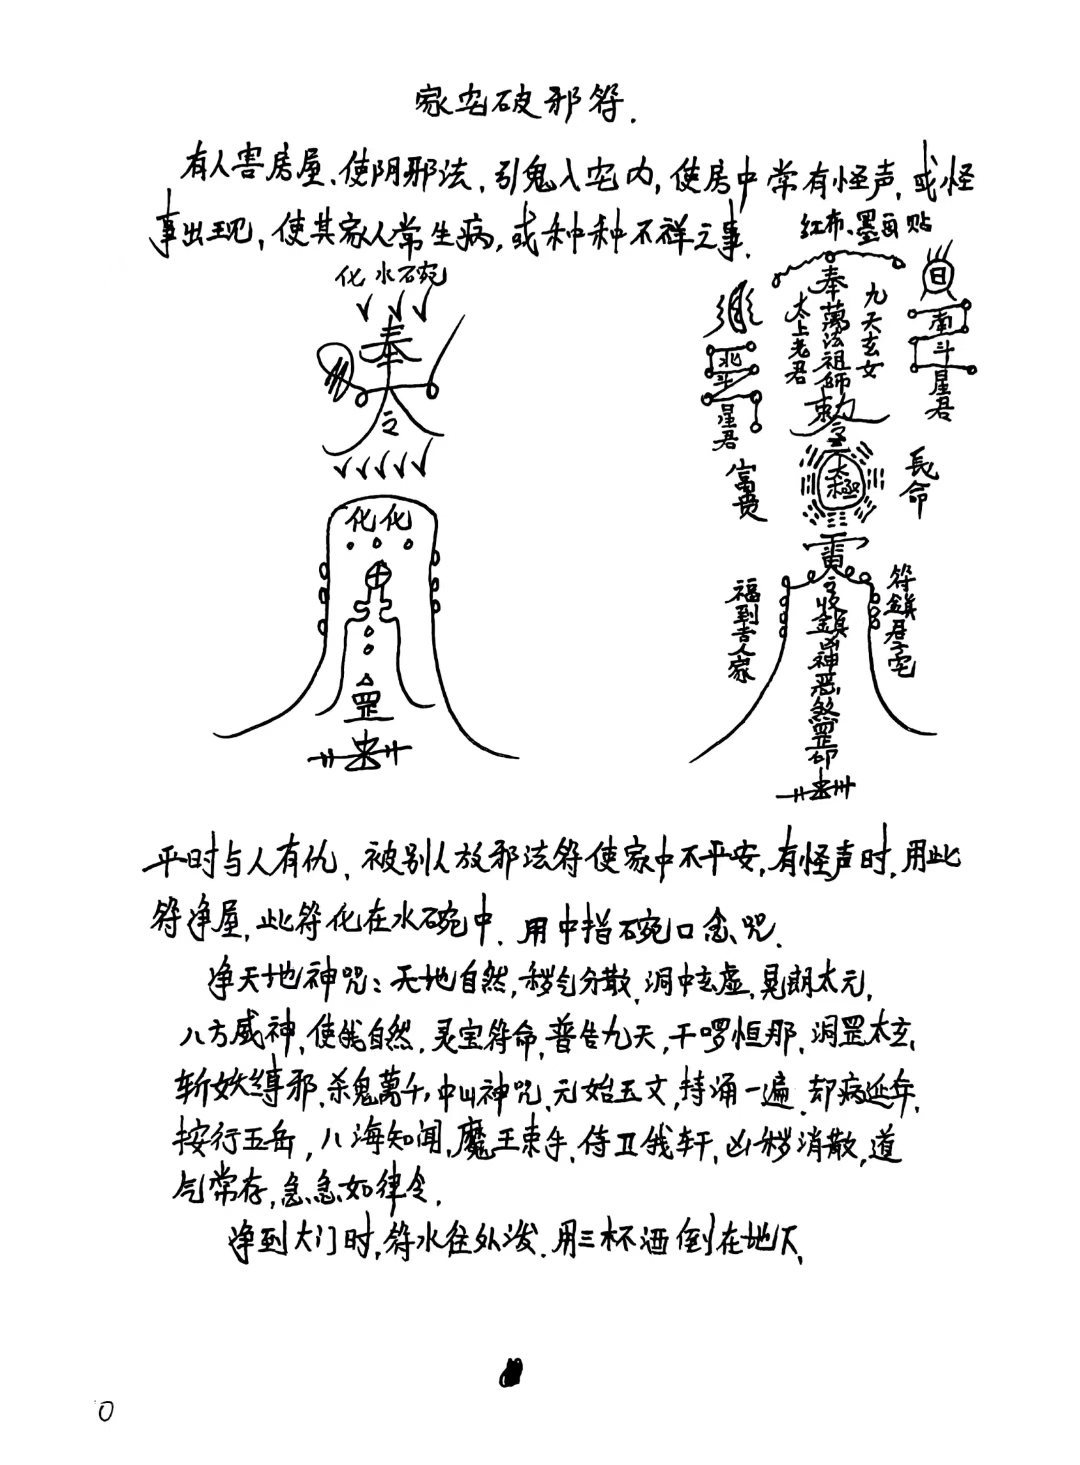 家宅破邪符.
有人害房屋、使阴邪法,引鬼入宅内,使房中常有怪声,或怪
事出现,使其家人常生病,或种种不祥之事.
红布、墨画贴
化水碗
奉
令
化化
罡
奉萬法祖師敕令
太上老君
九天玄女
日
北斗星君
南斗星君
太極
富贵
長命
雷
之收鎮凶神恶煞罡印
福到吉人家
符鎮君子宅
平时与人有仇,被别人放邪法符使家中不平安,有怪声时,用此
符净屋,此符化在水碗中.用中指碗口念咒.
净天地神咒:天地自然,秽气分散,洞中玄虚,晃朗太元,
八方威神,使俄自然.灵宝符命,普告九天,千啰恒那,洞罡太玄,
斩妖缚邪.杀鬼萬千,中山神咒,元始玉文,持诵一遍.却病延年,
按行五岳,八海知闻,魔王束手,侍卫俄轩,凶秽消散,道
气常存,急急如律令.
净到大门时,符水往外泼.用三杯酒倒在地下,
0